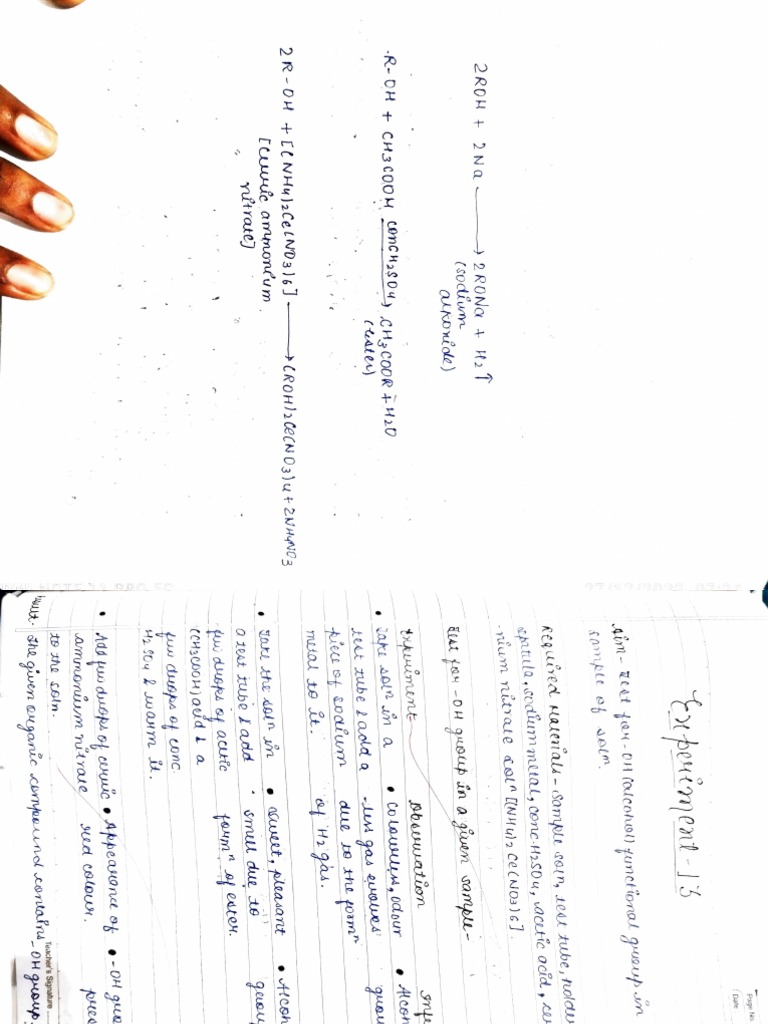 2ROH + 2Na ⟶ 2RONa + H2↑
(sodium
alkoxide)
R-OH + CH3COOH conc H2SO4 → CH3COOR + H2O
(ester)
2R-OH + [(NH4)2Ce(NO3)6] ⟶ (ROH)2Ce(NO3)4 + 2NH4NO3
[ceric ammonium
nitrate]
Page No.
Date
Experiment-13
Aim- Test for -OH (alcohol) functional group in
sample of solⁿ.
Required Materials - sample solⁿ, test tube, holder
spatula, sodium metal, conc-H2SO4, acetic acid, ce
nium nitrate solⁿ [(NH4)2 Ce(NO3)6].
Test for -OH group in a given sample-
Experiment Observation Infe
• Take solⁿ in a • Colourless, odour • Alcoh
test tube & add a -less gas evolves grou
piece of sodium due to the formⁿ
metal to it. of H2 gas.
• Take the solⁿ in • sweet, pleasant • Alcoh
a test tube & add smell due to grou
few drops of acetic formⁿ of ester.
(CH3COOH) acid & a
few drops of conc
H2SO4 & warm it.
• Add few drops of ceric • Appearance of • -OH gro
ammonium nitrate red colour. pres
to the solⁿ.
The given organic compound contains -OH group.
Teacher's Signature